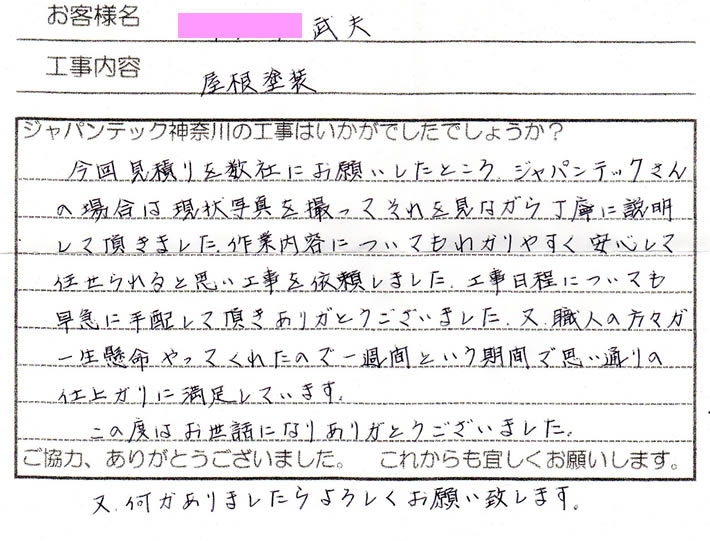 お客様名 武夫
工事内容 屋根塗装
ジャパンテック神奈川の工事はいかがでしたでしょうか？
今回見積りを数社にお願いしたところ、ジャパンテックさん
の場合は現状写真を撮ってそれを見ながら丁寧に説明
して頂きました。作業内容についてもわかりやすく安心して
任せられると思い工事を依頼しました。工事日程についても
早急に手配して頂きありがとうございました。又、職人の方々が
一生懸命やってくれたので一週間という期間で思い通りの
仕上がりに満足しています。
この度はお世話になりありがとうございました。
ご協力、ありがとうございました。 これからも宜しくお願いします。
又、何かありましたらよろしくお願い致します。